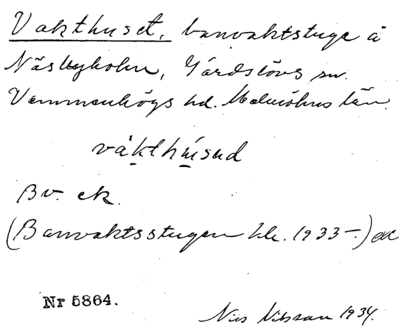 Vakthuset, banvaktstuga å
Näsbyholm, Gärdslövs sn.
Vemmenhögs hd. Malmöhus län.
våkthúsud
Bv. ek.
(Banvaktsstugan 1933-)
Nr 5864.
Nils Nilsson 1934.